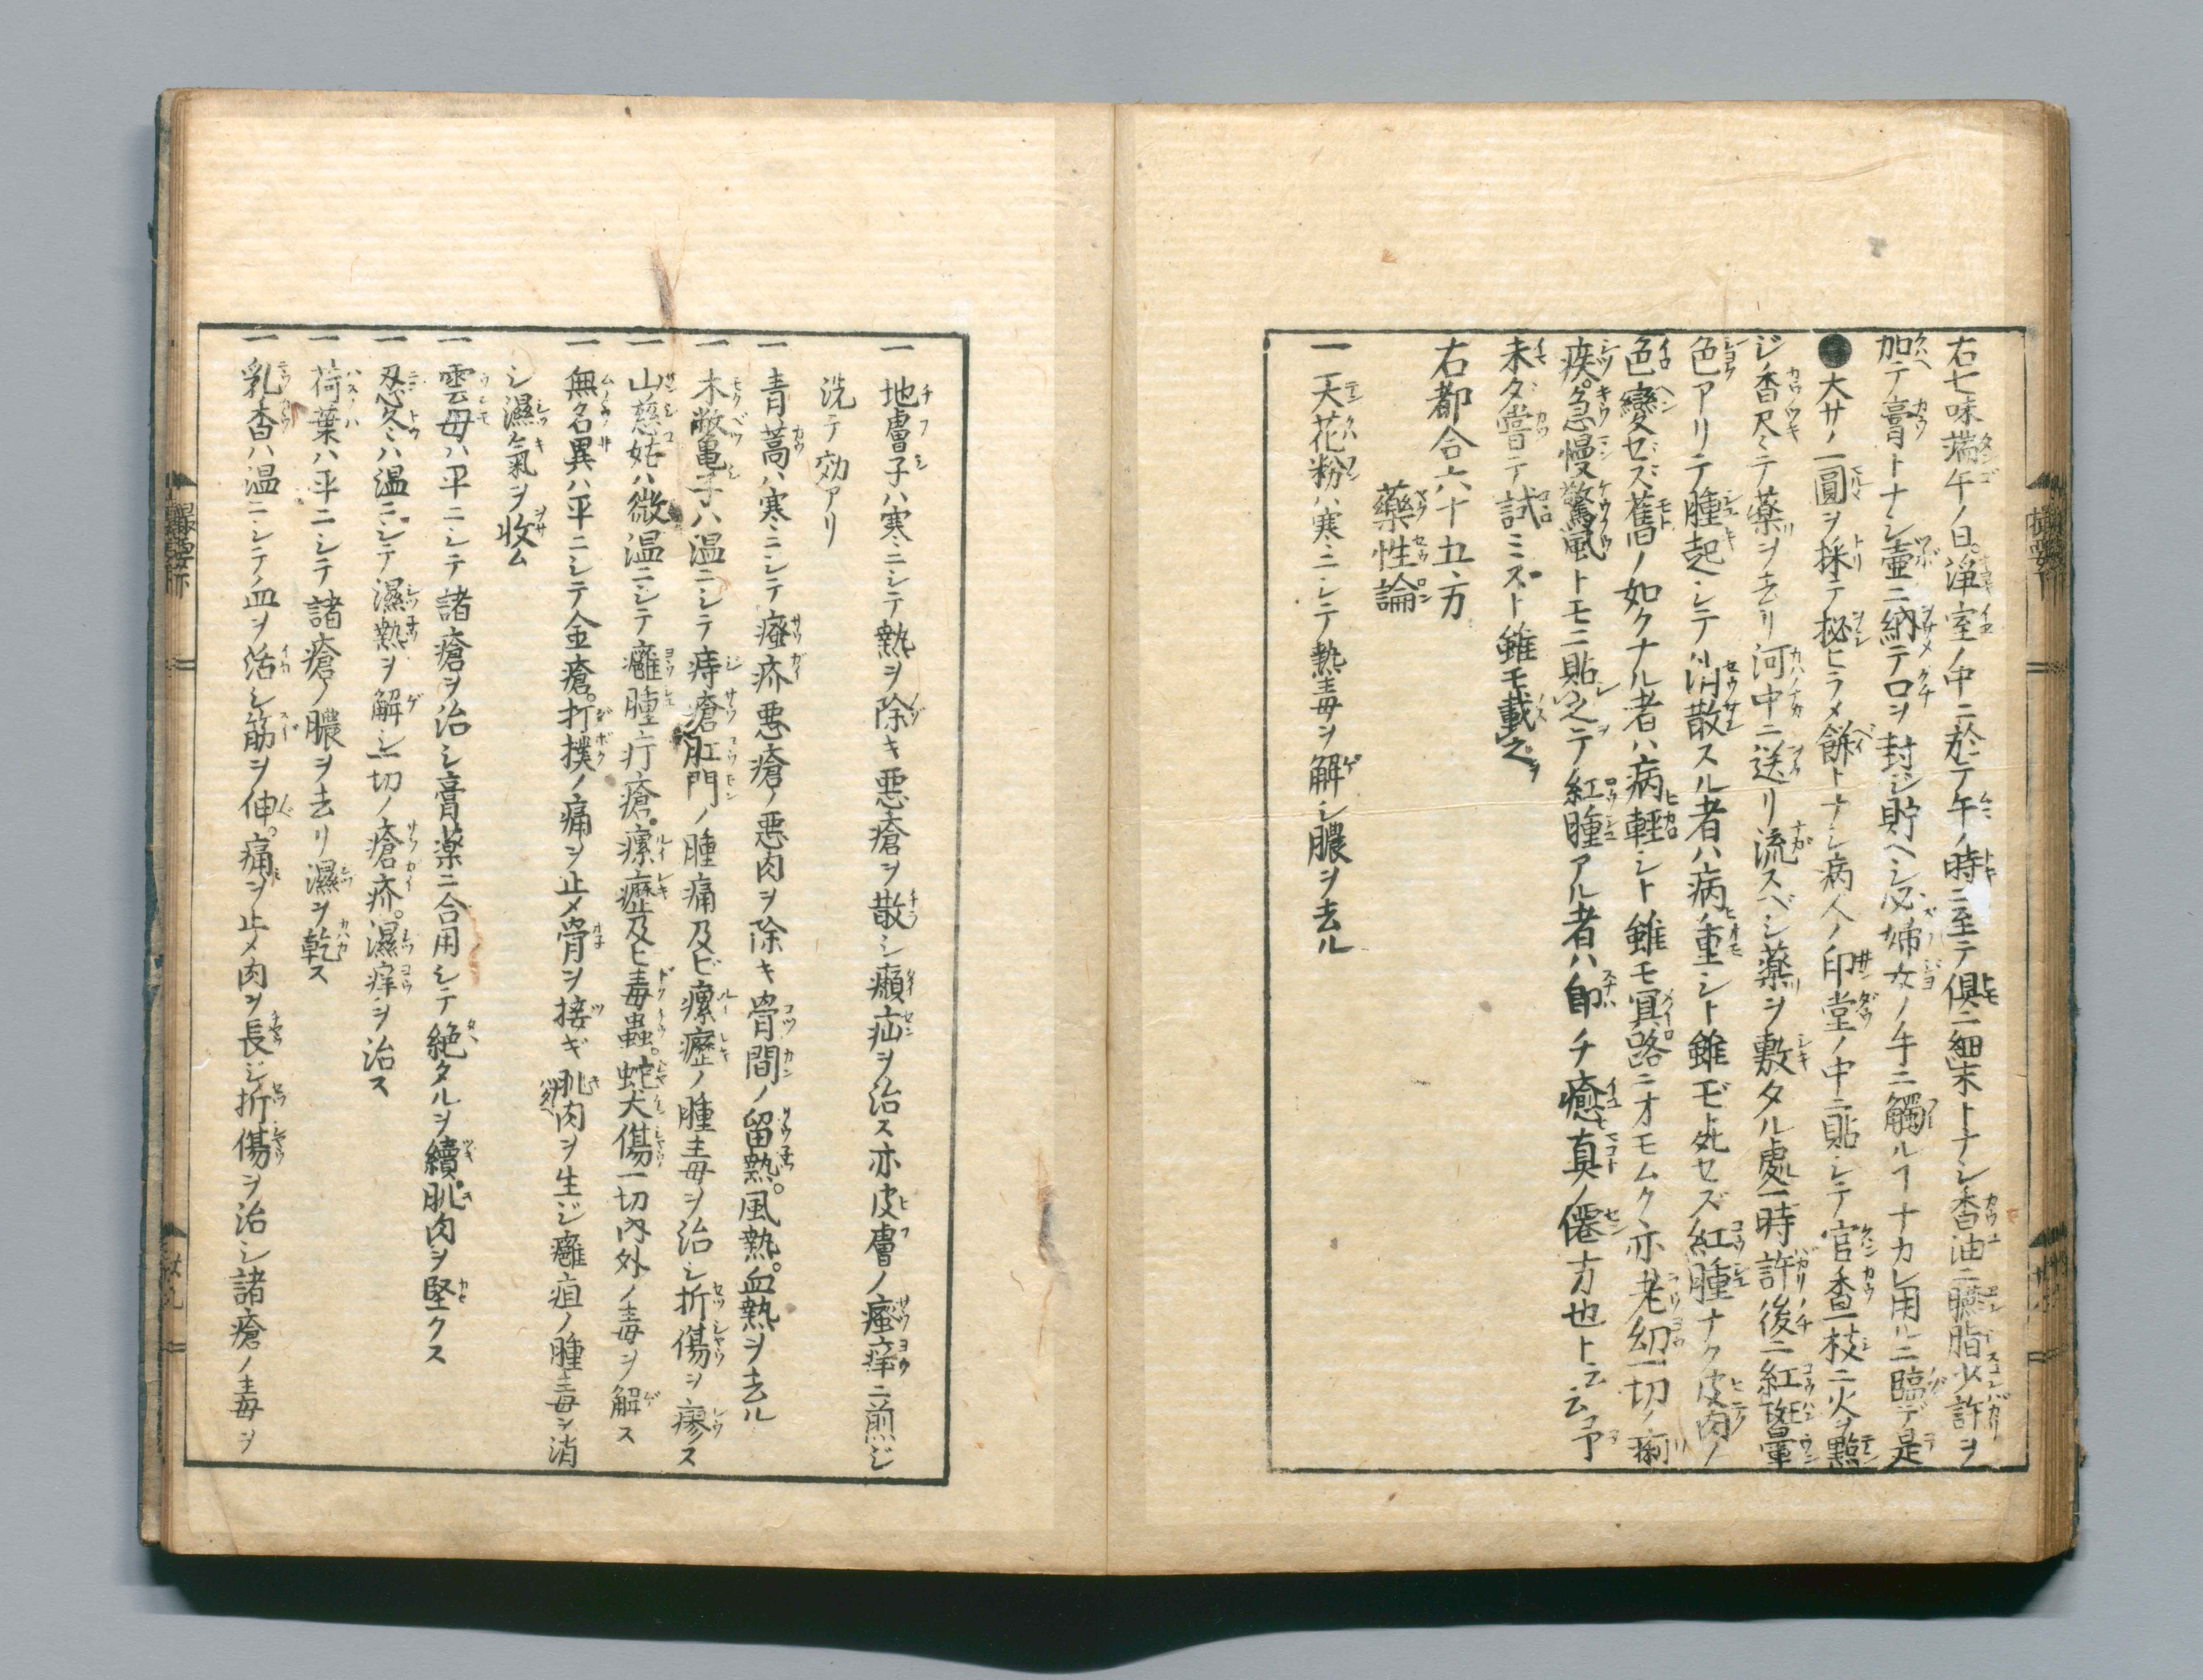 右七味端午ノ日。淨室ノ中ニ於テ午ノ時ニ至テ倶ニ細末トナシ香油ニ臙脂少許ヲ
加テ膏トナシ壷ニ納テ口ヲ封ジ貯ヘシ必婦女ノ手ニ觸ルヿナカレ用ルニ臨デ是
●大サノ一圓ヲ採テ拯ヒラメ餅トナシ病人ノ印堂ノ中ニ貼シテ官香一枝ニ火ヲ點
ジ香尽テ藥ヲ去リ河中ニ送リ流スベシ藥ヲ敷タル處一時許後ニ紅暈
色アリテ腫起シテ消散スル者ハ病重シト雖モ死セズ紅腫ナク皮肉ノ
色變セズ舊ノ如クナル者ハ病輕シト雖モ冥路ニオモムク亦老幼一切ノ痢
疾。急慢驚風トモニ貼之テ紅腫アル者ハ即チ癒真ノ僊方也ト云云予
未タ嘗テ試ミスト雖モ載之
右都合六十五方
藥性論
一天花粉ハ寒ニシテ熱毒ヲ解シ膿ヲ去ル
一地膚子ハ寒ニシテ熱ヲ除キ悪瘡ヲ散シ癩疝ヲ治ス亦皮膚ノ瘙痒ニ煎ジ
洗テ効アリ
一青蒿ハ寒ニシテ瘙疥悪瘡ノ悪肉ヲ除キ骨間ノ留熱。風熱。血熱ヲ去ル
一木敝亀子ハ温ニシテ痔瘡肛門ノ腫痛及ビ瘰癧ノ腫毒ヲ治シ折傷ヲ療ス
一山慈姑ハ微温ニシテ癰腫疔瘡。瘰癧及ヒ毒蟲。蛇犬傷一切内外ノ毒ヲ解ス
一無名異ハ平ニシテ金瘡。打撲ノ痛ヲ止メ骨ヲ接ギ肌肉ヲ生ジ癰疽ノ腫毒ヲ消
シ濕氣ヲ收ム
一雲母ハ平ニシテ諸瘡ヲ治シ膏藥ニ合用シテ絶タルヲ續肌肉ヲ堅クス
一忍冬ハ温ニシテ濕熱ヲ解シ一切ノ瘡疥。濕痒ヲ治ス
一荷葉ハ平ニシテ諸瘡ノ膿ヲ去リ濕ヲ乾ス
一乳香ハ温ニシテ血ヲ活シ筋ヲ伸。痛ヲ止メ肉ヲ長ジ折傷ヲ治シ諸瘡ノ毒ヲ